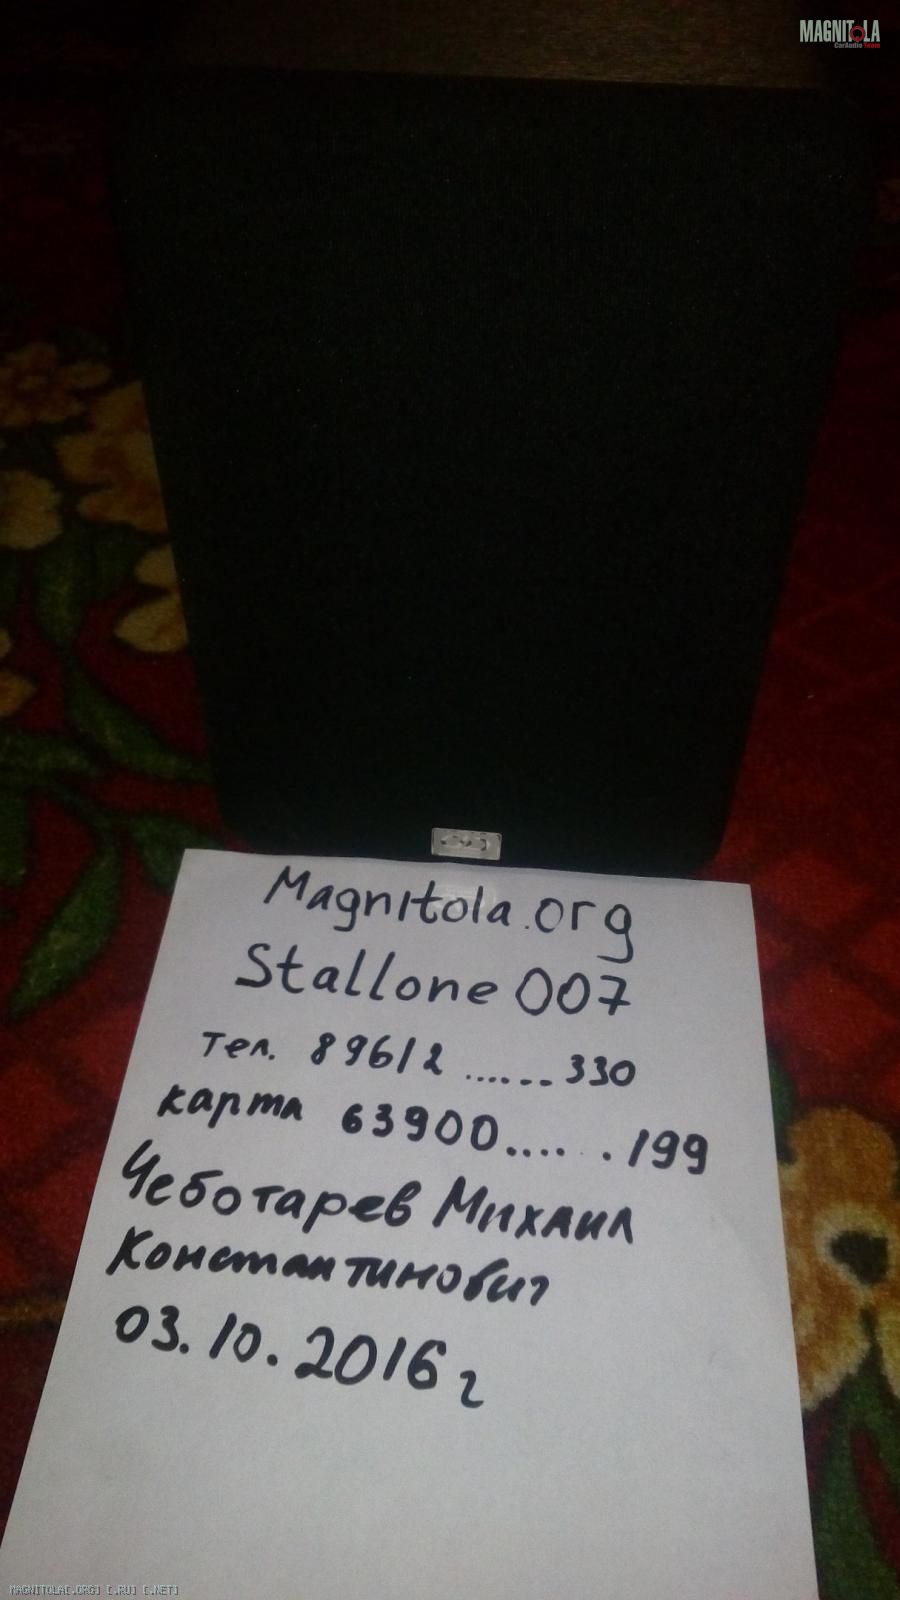 MAGNITOLA
CarAudio Team
Magnitola.org
Stallone 007
тел. 89612 ......330
карта 63900.... . .199
Чеботарев Михаил
Константинович
03.10.2016 г
MAGNITOLA[.ORG] [.RU] [.NET]